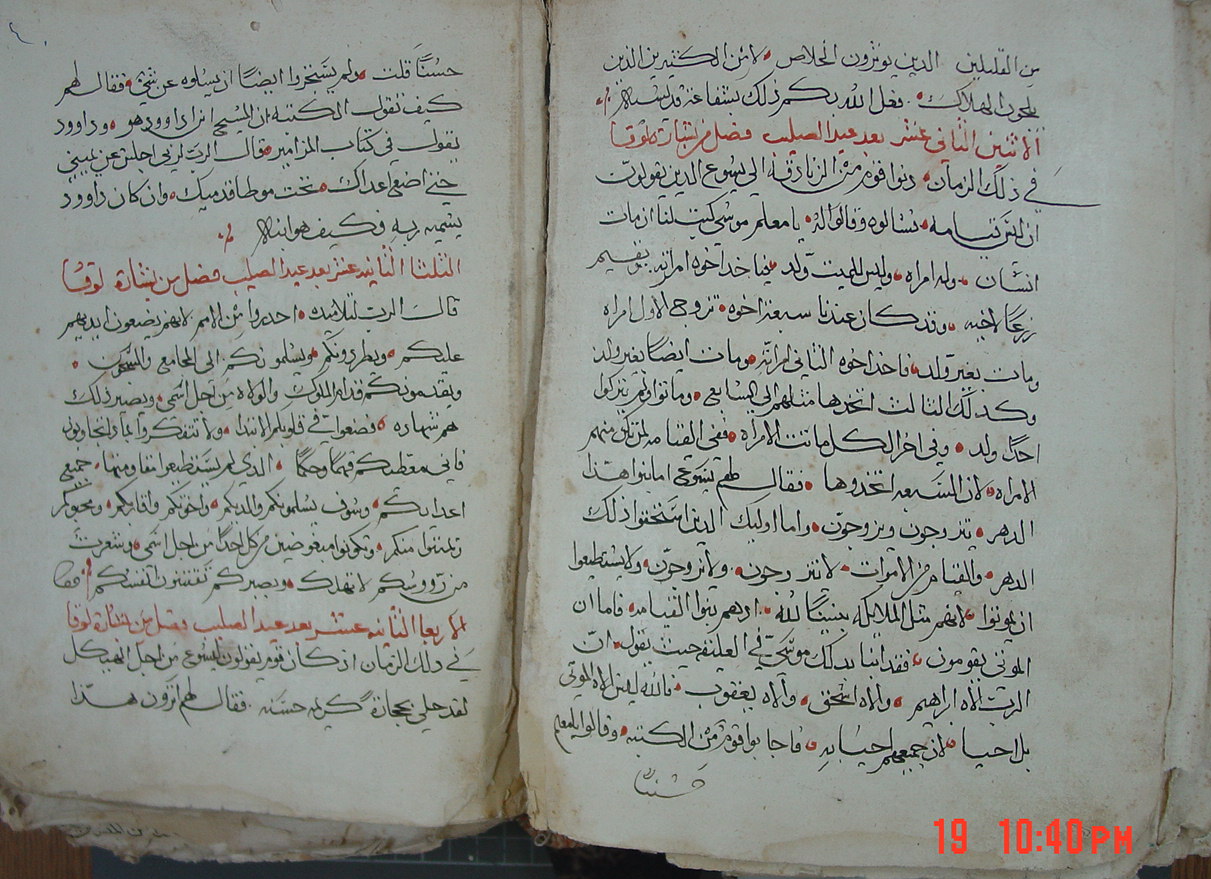 من القليلين الدين يوثرون الخلاص لا من الكثيرين الدين
يلجون الهلاك فعل الله بكم ذلك بشفاعة قديسيه
الاثنين الثاني عشر بعد عيد الصليب فصل من بشارة لوقا
في ذلك الزمان دنوا قوم من الزنادقه الي يسوع الدين يقولون
ان ليس قيامه يسالوه وقالوا له يا معلم موسى كتب لنا ان مات
انسان وله امراه وليس للميت ولد فياخد اخوه امراته يقيم
زرعًا لاخيه وقد كان عندنا سبعة اخوه تزوج الاول امراه
ومات بغير ولد فاخد اخوه الثاني امراته ومات ايضًا بغير ولد
وكدلك الثالث اتخدها مثلهم الي السابع وماتوا ولم يتركوا
احدًا ولد وفي اخر الكل ماتت الامراه ففي القيامه لمن تكون منهم
الامراه لان السبعه اتخدوها فقال لهم يسوع اما بنوا هدا
الدهر يتزوجون ويزوجون واما اوليك الدين استحقوا دلك
الدهر والقيامه من الاموات لا يتزوجون ولا يزوجون ولا يستطيعوا
ان يموتوا لانهم مثل الملايكه بنيّا لله اد هم بنوا القيامه فاما ان
الموتى يقومون فقد انبا بدلك موسى في العليقه حيث يقول ان
الرب الاه ابراهيم والاه اسحق والاه يعقوب فالله ليس الاه الموتى
بل احيا لان جميعهم احيا به فاجابوا قوم من الكتبه وقالوا يا معلم
حسنا
حسنًا قلت ولم يستجروا ايضًا ان يسلوه عن شي فقال لهم
كيف تقول الكتبه ان المسيح ابن داوود هو وداوود
يقول في كتاب المزامير قال الرب لربي اجلس عن يميني
حتى اضع اعداك تحت موطا قدميك وان كان داوود
يسميه ربه فكيف هو ابنه
الثلثا الثانيه عشر بعد عيد الصليب فصل من بشارة لوقا
قال الرب لتلاميده احدروا من الامم لانهم يضعون ايديهم
عليكم ويطردونكم ويسلمونكم الى المجامع والسجون
ويقدمونكم قدام الملوك والولاه من اجل اسمي ويصير دلك
لهم شهاده فضعوا في قلوبكم الا تبدا ولا تتفكروا بمادا تجاوبون
فاني معطيكم فمًا وحكمًا الدي لم يستطيعوا يقاومها جميع
اعدايكم وسوف يسلمونكم والديكم واخوتكم واقاربكم ومحبوكم
ويميتوا منكم وتكونوا مبغوضين من كل احدًا من اجل اسمي وشعرة
من رووسكم لا تهلك وبصبركم تقتنون انفسكم
الاربعا الثانيه عشر بعد عيد الصليب فصل من بشارة لوقا
في دلك الزمان اد كان قوم يقولون ليسوع من اجل الهيكل
لقد حلي بحجارة كريمه حسنه فقال لهم اترون هدا
19 10:40 PM